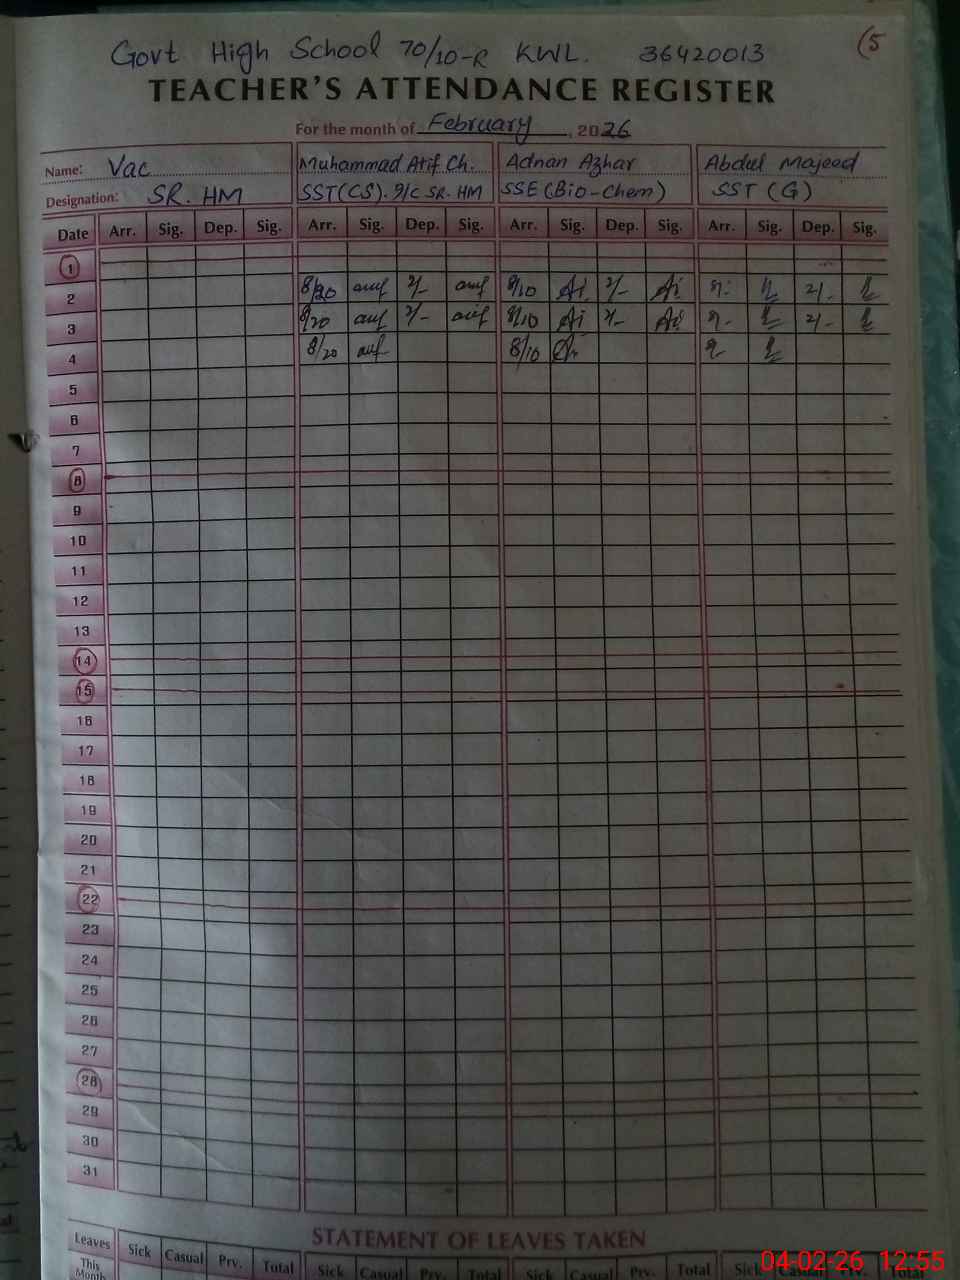 Govt High School 70/10-R KWL. 36420013 (5
TEACHER'S ATTENDANCE REGISTER
For the month of February, 2026
Name: Vac Muhammad Atif Ch. Adnan Azhar Abdul Majeed
Designation: SR. HM SST(CS). I/C SR. HM SSE (Bio-Chem) SST (G)
Date Arr. Sig. Dep. Sig. Arr. Sig. Dep. Sig. Arr. Sig. Dep. Sig. Arr. Sig. Dep. Sig.
1
2 8/20 2/- 8/10 2/- 2/-
3 8/20 2/- 8/10 2/- 2/-
4 8/20 8/10
5
6
7
8
9
10
11
12
13
14
15
16
17
18
19
20
21
22
23
24
25
26
27
28
29
30
31
STATEMENT OF LEAVES TAKEN
Leaves This Month Sick Casual Prv. Total Sick Casual Prv. Total Sick Casual Prv. Total Sick Casual Prv. Total
04-02-26 12:55